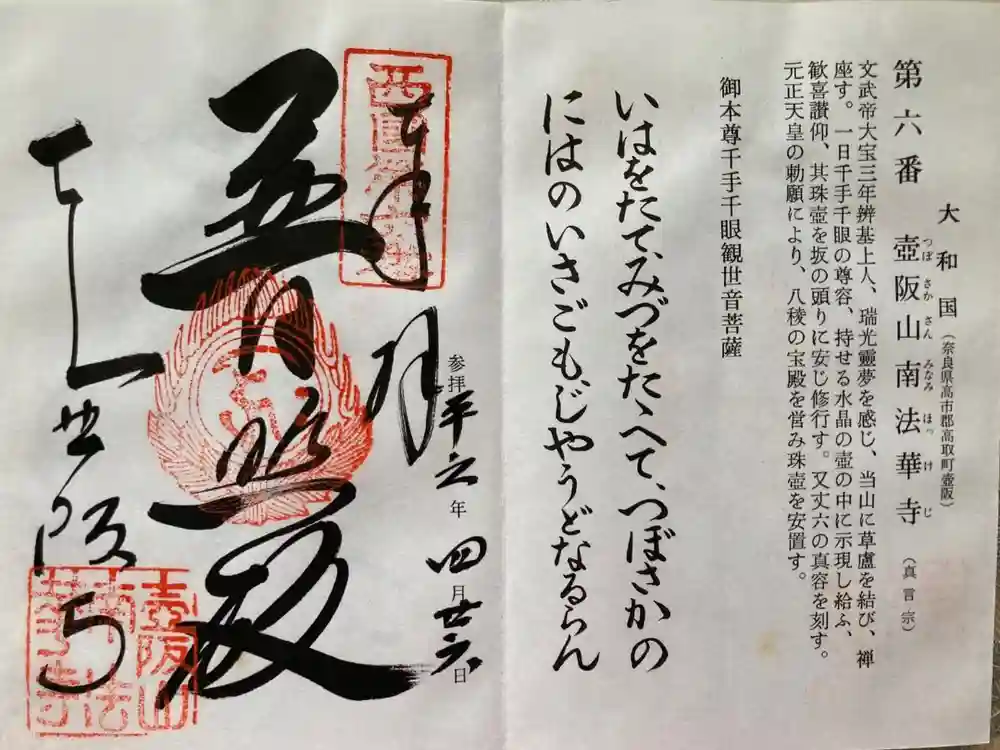 大和国（奈良県高市郡高取町壺阪）
第六番 壺阪山南法華寺（真言宗）
つぼ さか さん みなみ ほっ け じ
文武帝大宝三年辨基上人、瑞光靈夢を感じ、当山に草盧を結び、禅
座す。一日千手千眼の尊容、持せる水晶の壺の中に示現し給ふ、
歓喜讃仰、其珠壺を坂の頭りに安じ修行す。又丈六の真容を刻す。
元正天皇の勅願により、八稜の宝殿を営み珠壺を安置す。
御本尊千手千眼観世音菩薩
いはをたて、みづをたゝへて、つぼさかの
にはのいさごもじやうどなるらん
奉拝
参拝平六年四月廿六日
普照殿
壺阪寺
壺阪山
南法
華寺